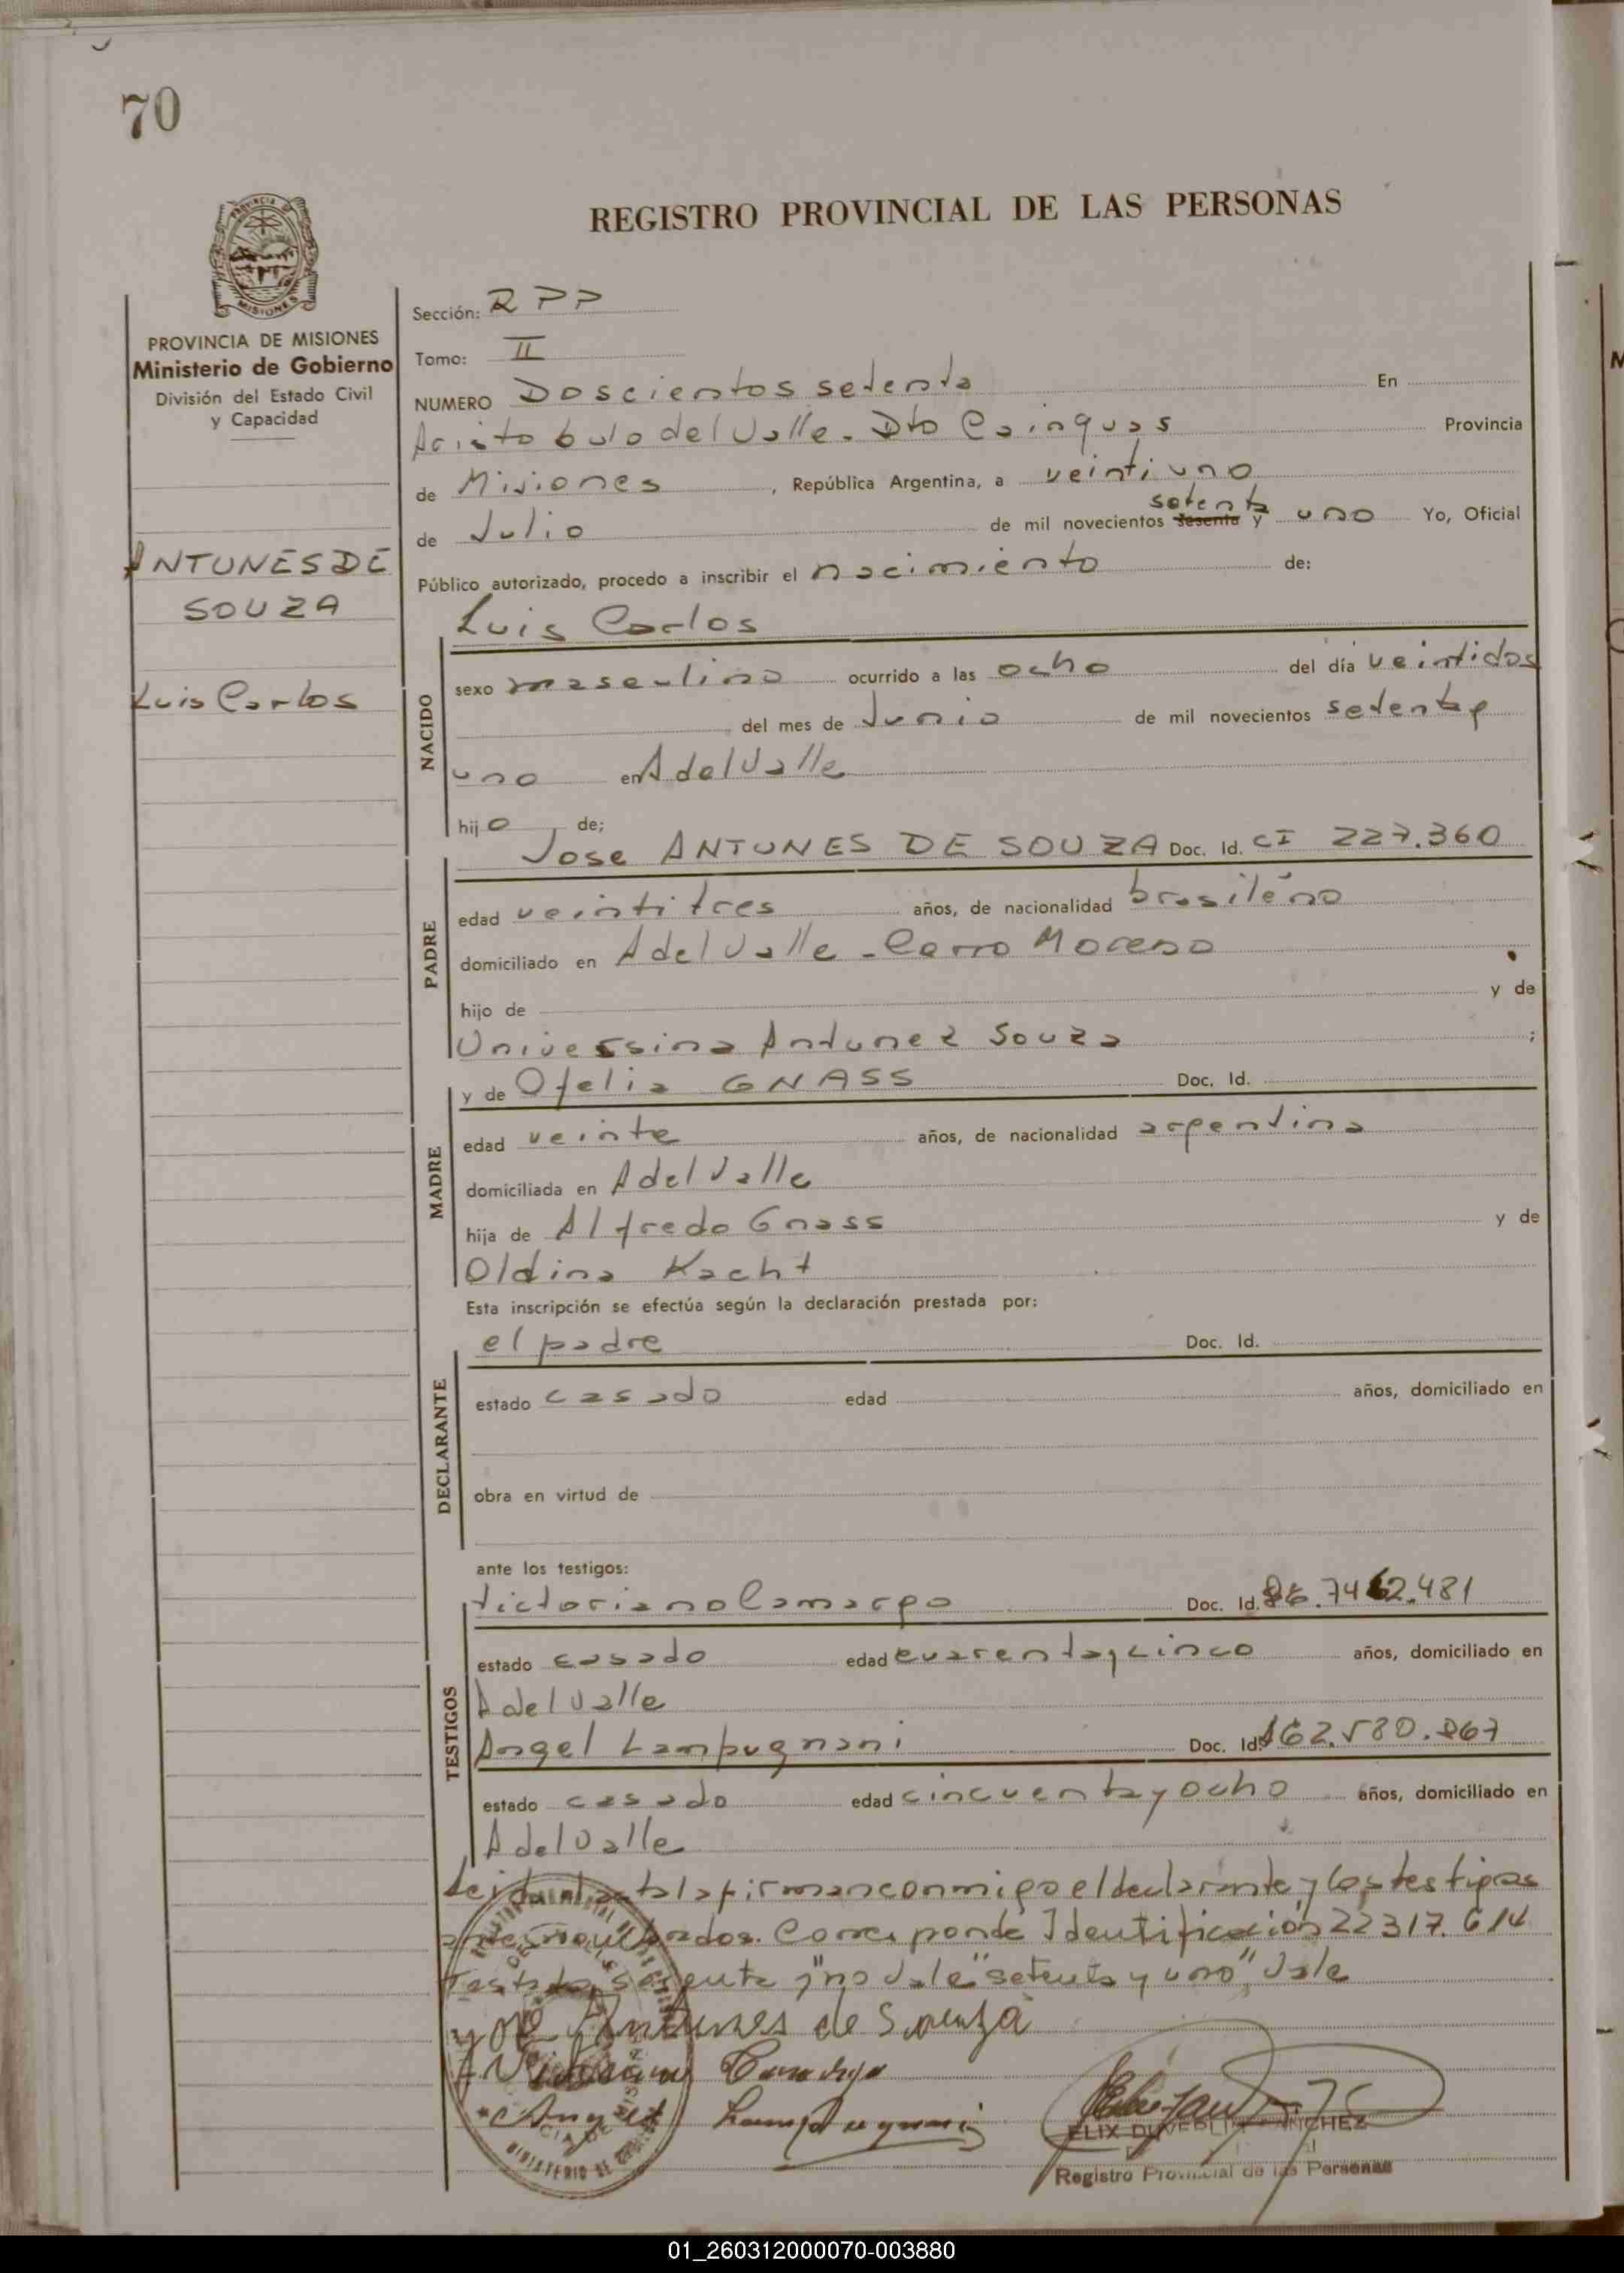 70
REGISTRO PROVINCIAL DE LAS PERSONAS
PROVINCIA DE MISIONES
Ministerio de Gobierno
División del Estado Civil
y Capacidad
ANTUNES DE
SOUZA
Luis Carlos
Sección: RPP
Tomo: II
NUMERO Doscientos setenta En
Aristobulo del Valle. Dto Cainguas Provincia
de Misiones, República Argentina, a veintiuno
setenta
de Julio de mil novecientos sesenta y uno Yo, Oficial
Público autorizado, procedo a inscribir el nacimiento de:
Luis Carlos
NACIDO
sexo masculino ocurrido a las ocho del día veintidos
del mes de Junio de mil novecientos setenta y
uno en A del Valle
hijo de;
Jose ANTUNES DE SOUZA Doc. Id. CI 227.360
PADRE
edad veintitres años, de nacionalidad brasileño
domiciliado en A del Valle - Cerro Moreno
hijo de y de
Universina Antunez Souza ;
y de Ofelia GNASS Doc. Id.
MADRE
edad veinte años, de nacionalidad argentina
domiciliada en A del Valle
hija de Alfredo Gnass y de
Oldina Kacht
Esta inscripción se efectúa según la declaración prestada por:
el padre Doc. Id.
DECLARANTE
estado casado edad años, domiciliado en
obra en virtud de
ante los testigos:
Victoriano Camargo Doc. Id.
TESTIGOS
estado casado edad cuarenta y cinco años, domiciliado en
A del Valle
Angel Lampugnani Doc. Id.
estado casado edad cincuenta y ocho años, domiciliado en
A del Valle
Leida el acta la firman conmigo el declarante y los testigos
antes nombrados. Corresponde Identificación 22317.614
Testado sesenta y "no vale" setenta y uno", Vale
Antunes de Souza
Angel Lampugnani
Registro Provincial de las Personas
01_260312000070-003880